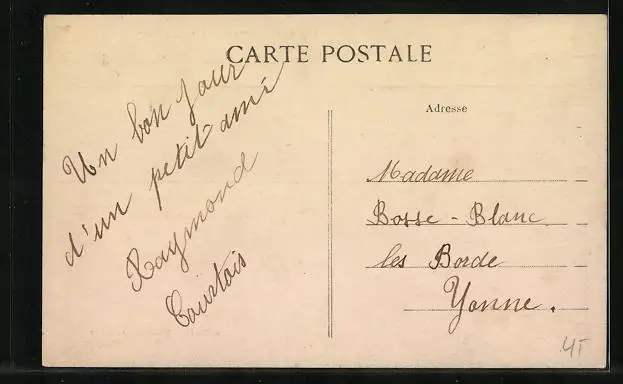 CARTE POSTALE
Un bon jour
d'un petit ami
Raymond
Courtois
Adresse
Madame
Bosse - Blanc
les Borde
Yonne.